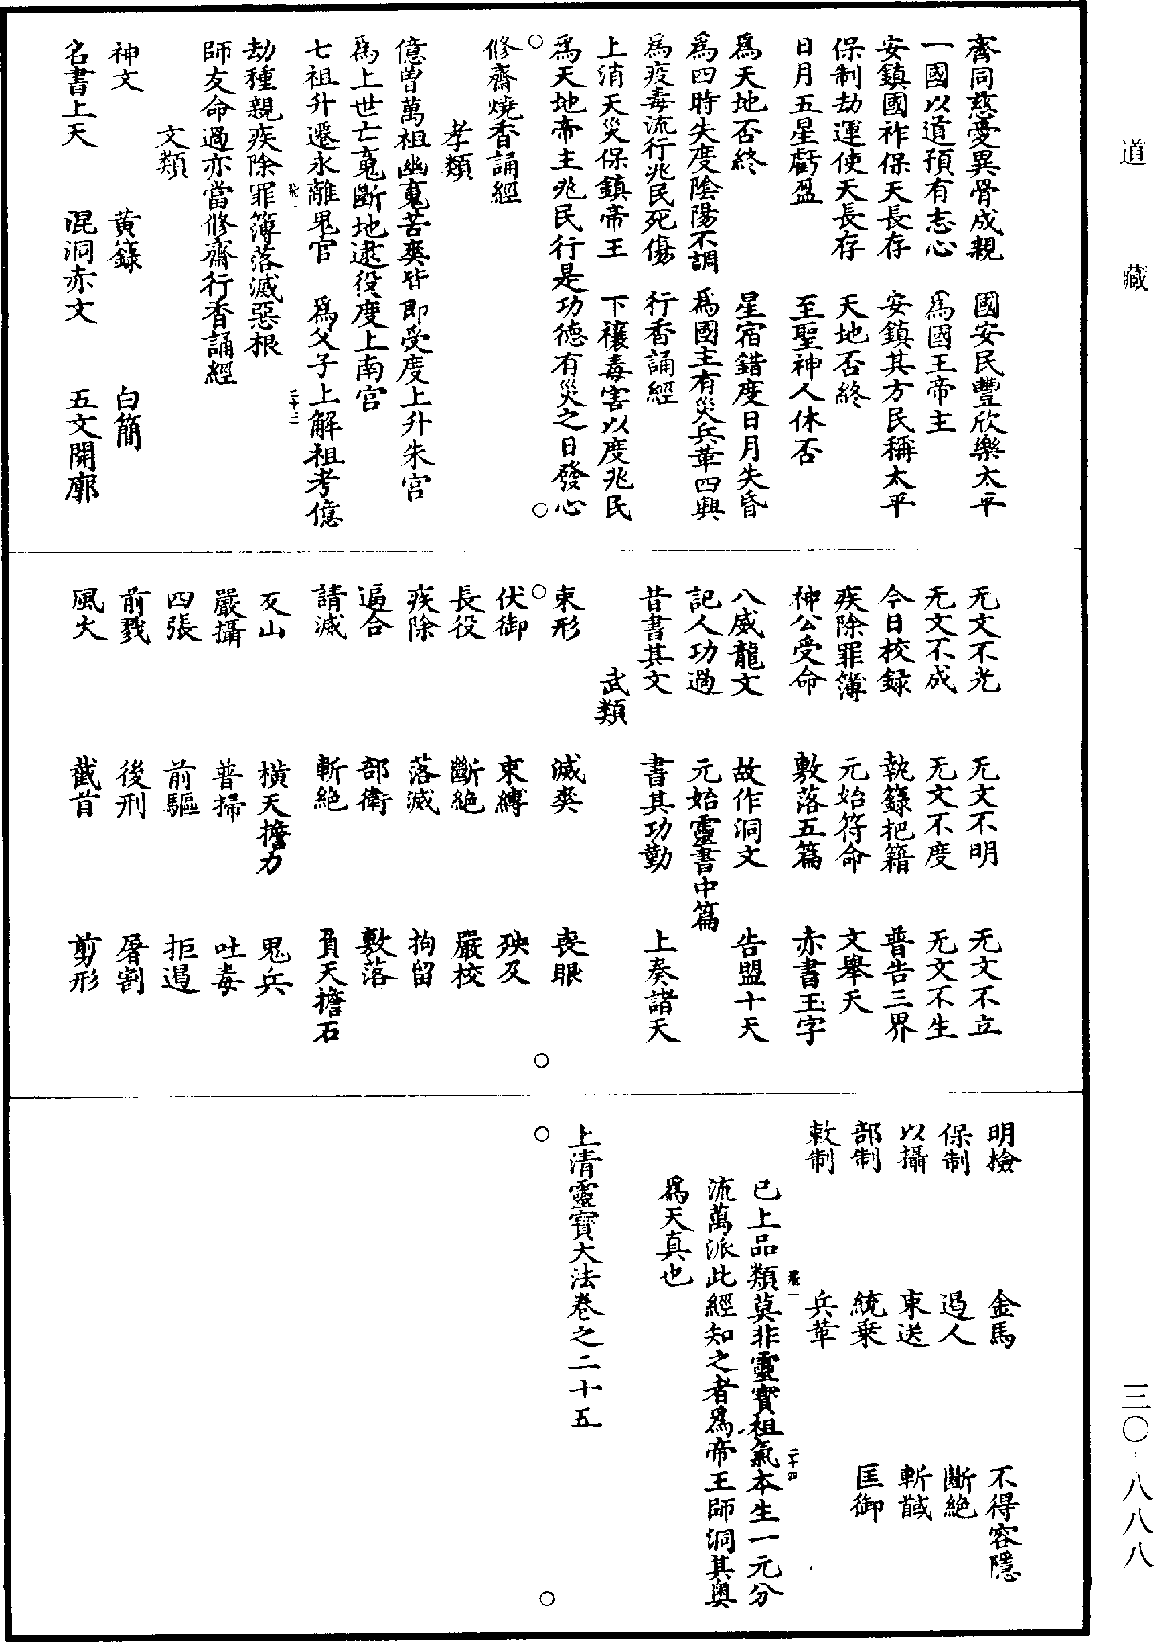 道藏
齊同慈愛異骨成親　國安民豐欣樂太平
一國以道預有志心　爲國王帝主
安鎮國祚保天長存　安鎮其方民稱太平
保制劫運使天長存　天地否終
日月五星虧盈　至聖神人休否
爲天地否終　星宿錯度日月失昏
爲四時失度陰陽不調　爲國主有災兵革四興
爲疫毒流行兆民死傷　行香誦經
上消天災保鎮帝王　下禳毒害以度兆民
爲天地帝主兆民行是功德有災之日發心
修齋燒香誦經
孝類
億曾萬祖幽䰟苦爽皆即受度上升朱宮
爲上世亡䰟斷地逮役度上南宮
七祖升遷永離鬼官　爲父子上解祖考億
劫種親疾除罪簿落滅惡根
師友命過亦當修齋行香誦經
文類
神文　黃籙　白簡
名書上天　混洞赤文　五文開廓
无文不光　无文不明　无文不立
无文不成　无文不度　无文不生
今日校錄　執籙把籍　普告三界
疾除罪簿　元始符命　文舉天
神公受命　敷落五篇　赤書玉字
八威龍文　故作洞文　告盟十天
記人功過　元始靈書中篇
昔書其文　書其功勤　上奏諸天
武類
束形　滅爽　喪眼
伏御　束縛　殃及
長役　斷絶　嚴校
疾除　落滅　拘留
逼合　部衛　敷落
請滅　斬絶　負天擔石
妓山　橫天擔力　鬼兵
嚴攝　普掃　吐毒
四張　前驅　拒遏
前戮　後刑　屠割
風火　截首　剪形
明檢　金馬　不得容隱
保制　過人　斷絶
以攝　束送　斬馘
部制　統乗　匡御
敕制　兵革
已上品類莫非靈寳祖氣本生一元分
流萬派此經知之者爲帝王師洞其奥
爲天真也
上清靈寳大法卷之二十五
三〇·八八八